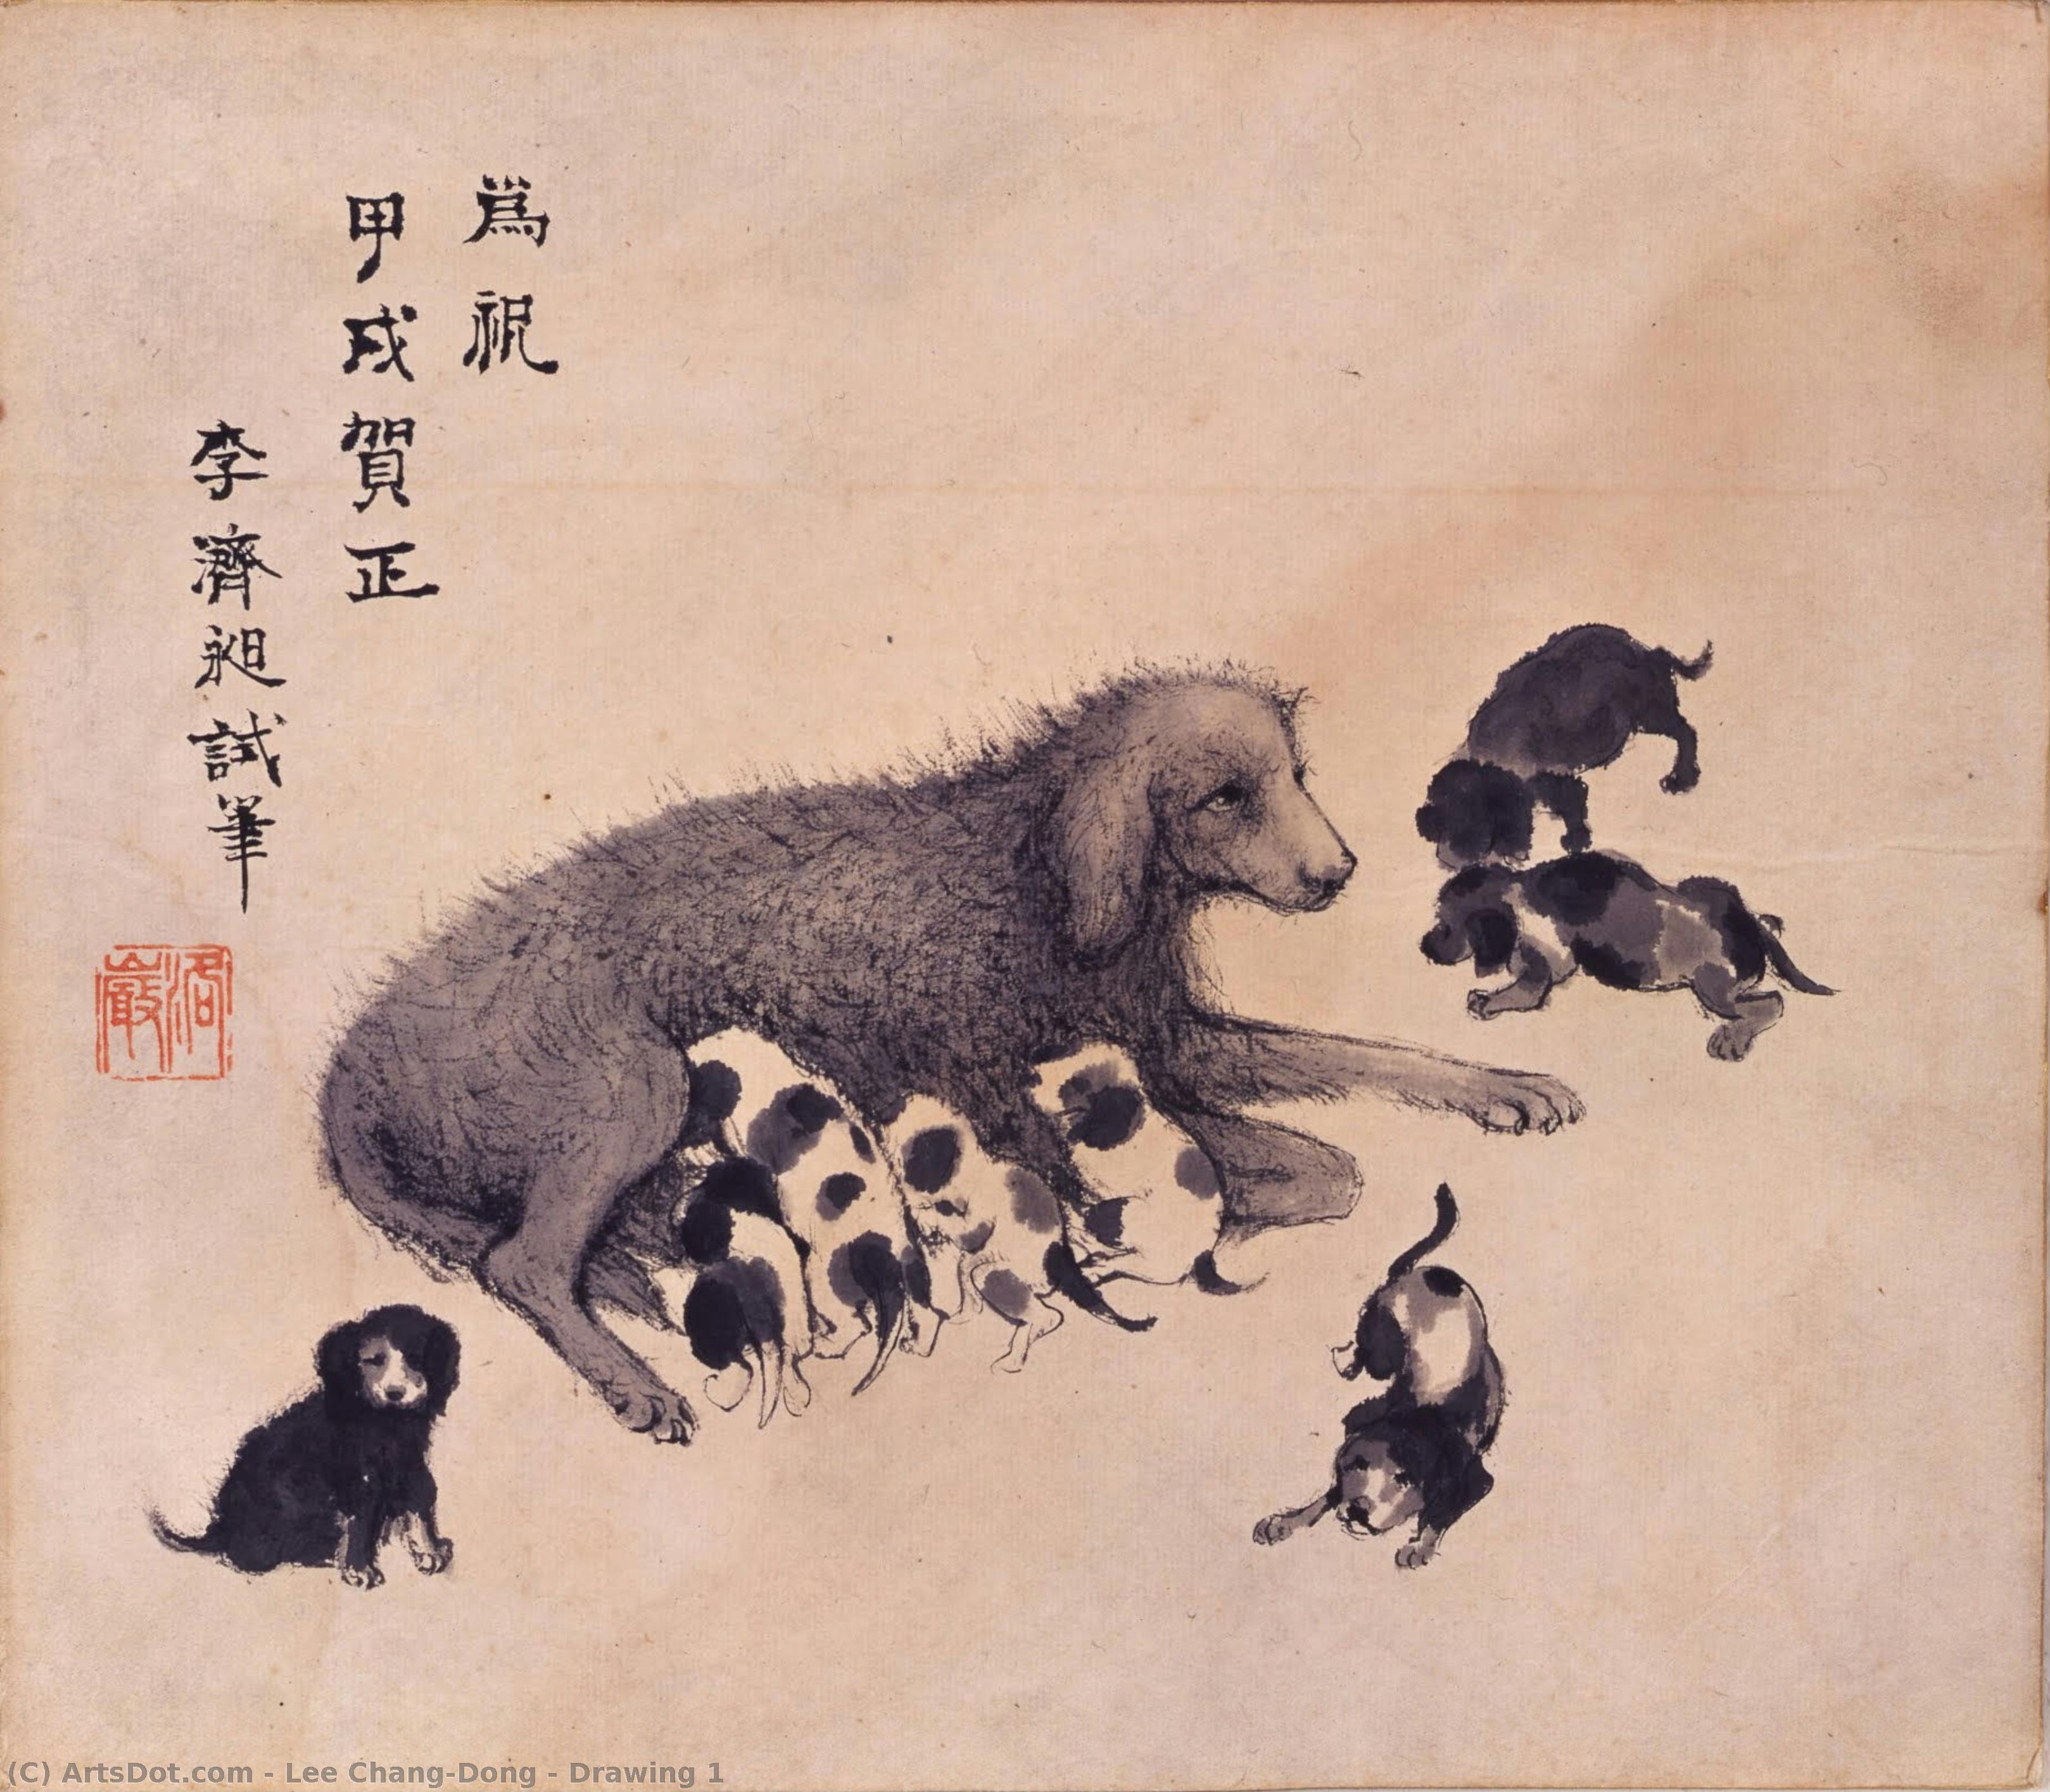 爲祝
甲戌賀正
李濟昶試筆
洛巖
(C) ArtsDot.com - Lee Chang-Dong - Drawing 1